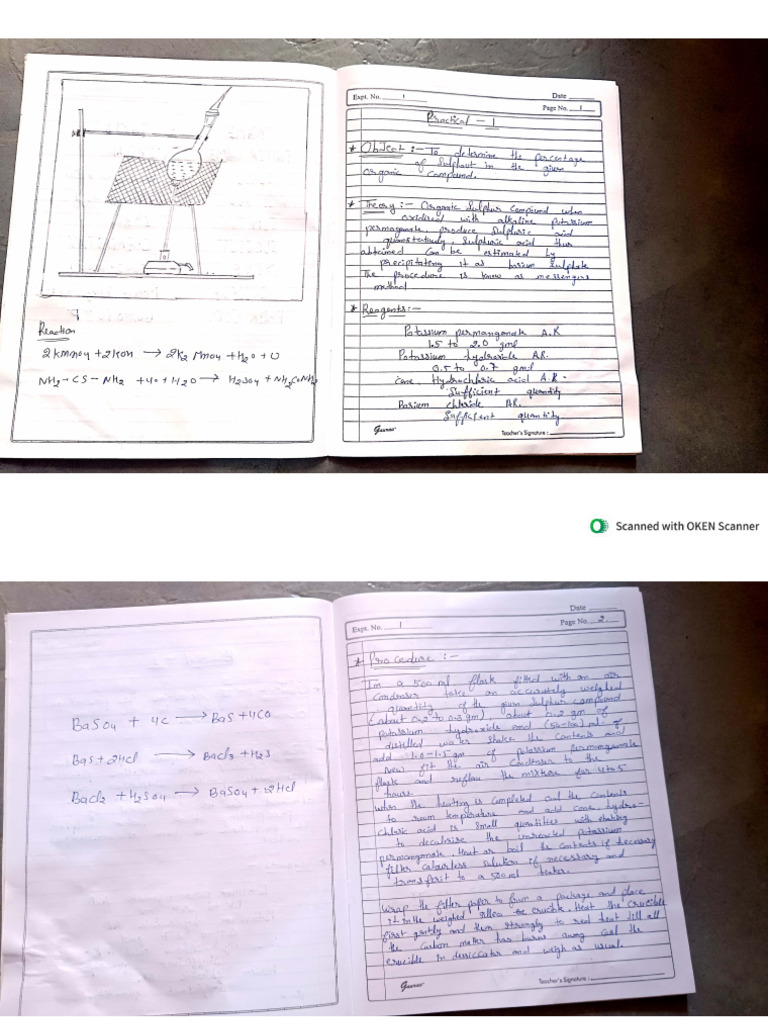 Reaction
2KMnO4 + 2KOH → 2K2 MnO4 + H2O + O
NH2 - CS - NH2 + 4O + H2O → H2SO4 + NH2CONH2
Expt. No. 1
Date
Page No. 1
Practical - 1
* Object :- To determine the percentage
of Sulphur in the given
organic compound.
* Theory :- Organic Sulphur compound when
oxidised with alkaline potassium
permagnate, produce Sulphuric acid
quantitatively. Sulphuric acid thus
obtained can be estimated by
precipitateng it as barium sulphate
The procedure is know as messengers
method
* Reagents :-
Potassium permanganate A.R
1.5 to 2.0 gml
Potassium hydroxide AR.
0.5 to 0.7 gml
conc. Hydrochloric acid A.R -
Sufficient quantity
Barium chloride AR.
Sufficient quantity
Gaurav
Teacher's Signature :
Scanned with OKEN Scanner
BaSO4 + 4C → BaS + 4CO
BaS + 2HCl → BaCl2 + H2S
BaCl2 + H2SO4 → BaSO4 + 2HCl
Date
Expt. No. 1
Page No. 2.
* Procedure :-
In a 500 ml flask fitted with an air
condenser take an accurately weighed
quantity of the given sulphur compound
(about 0.2 to 0.3 gm) about 0.2 gm of
potassium hydroxide and (50-100) ml of
distelled water shake the contents and
add 1.0-1.5 gm of potassium permanganate
Now fit the air condenser to the
flask and reflux the mixture for 4 to 5
hours.
when the heating is completed cool the contents
to room temperature and add conc. hydro-
chloric acid is small quantities with shaking
to the unreacted potassium
permanganate. Heat or boil the contents if necessary
filter colourless solution if necessary and
to a 500 ml beaker.
Wrap the filter paper to form a package and place
it in the weighed crucible. Heat the crucible
first gently and then strongly to red heat till all
the carbon has away cool the
crucible in dessiccator and weigh as usual.
Gaurav
Teacher's Signature :